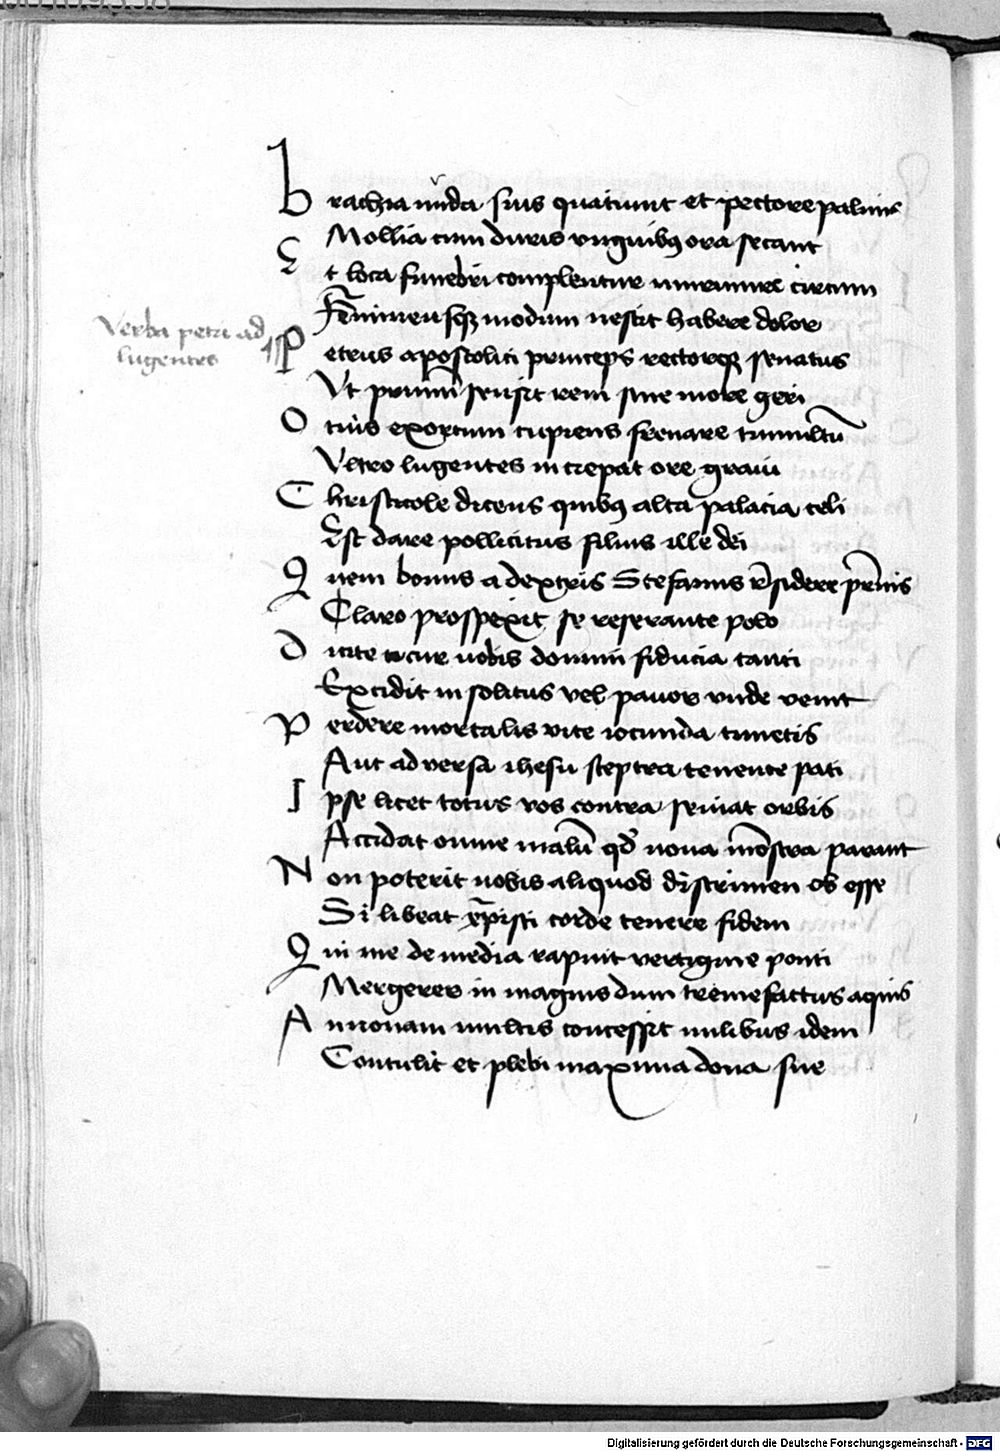 Brachia nuda suis quatiunt et pectore palmis
Mollia cum duris unguibus ora secant
Et loca funebri complentur murmure circum
Femineusque modum nescit habere dolor
Verba petri ad
lugentes
Petrus apostolici princeps rectorque senatus
Vt primum sensit rem sine more geri
Ocius exortum cupiens frenare tumultum
Vltro lugentes increpat ore graui
Christicole dicens quibus alta palacia celi
Est dare pollicitus filius ille dei
Quem bonus a dextris Stefanus residere paternis
Claro prospexit se reserante polo
Dicite cur uobis domini fiducia tanti
Excidit in solitus vel pauor vnde venit
Perdere mortalis vite iocunda timetis
Aut adversa ihesu sceptra tenente pati
Ipse licet totus vos contra seuiat orbis
Accidat omne malum quod noua monstra parant
Non poterit uobis aliquod discrimen ob esse
Si libeat christi corde tenere fidem
Qui me de media rapuit vertigine ponti
Mergerer in magnis dum tremefactus aquis
Annonam multis concessit milibus idem
Contulit et plebi maxima dona sue
Digitalisierung gefördert durch die Deutsche Forschungsgemeinschaft - DFG